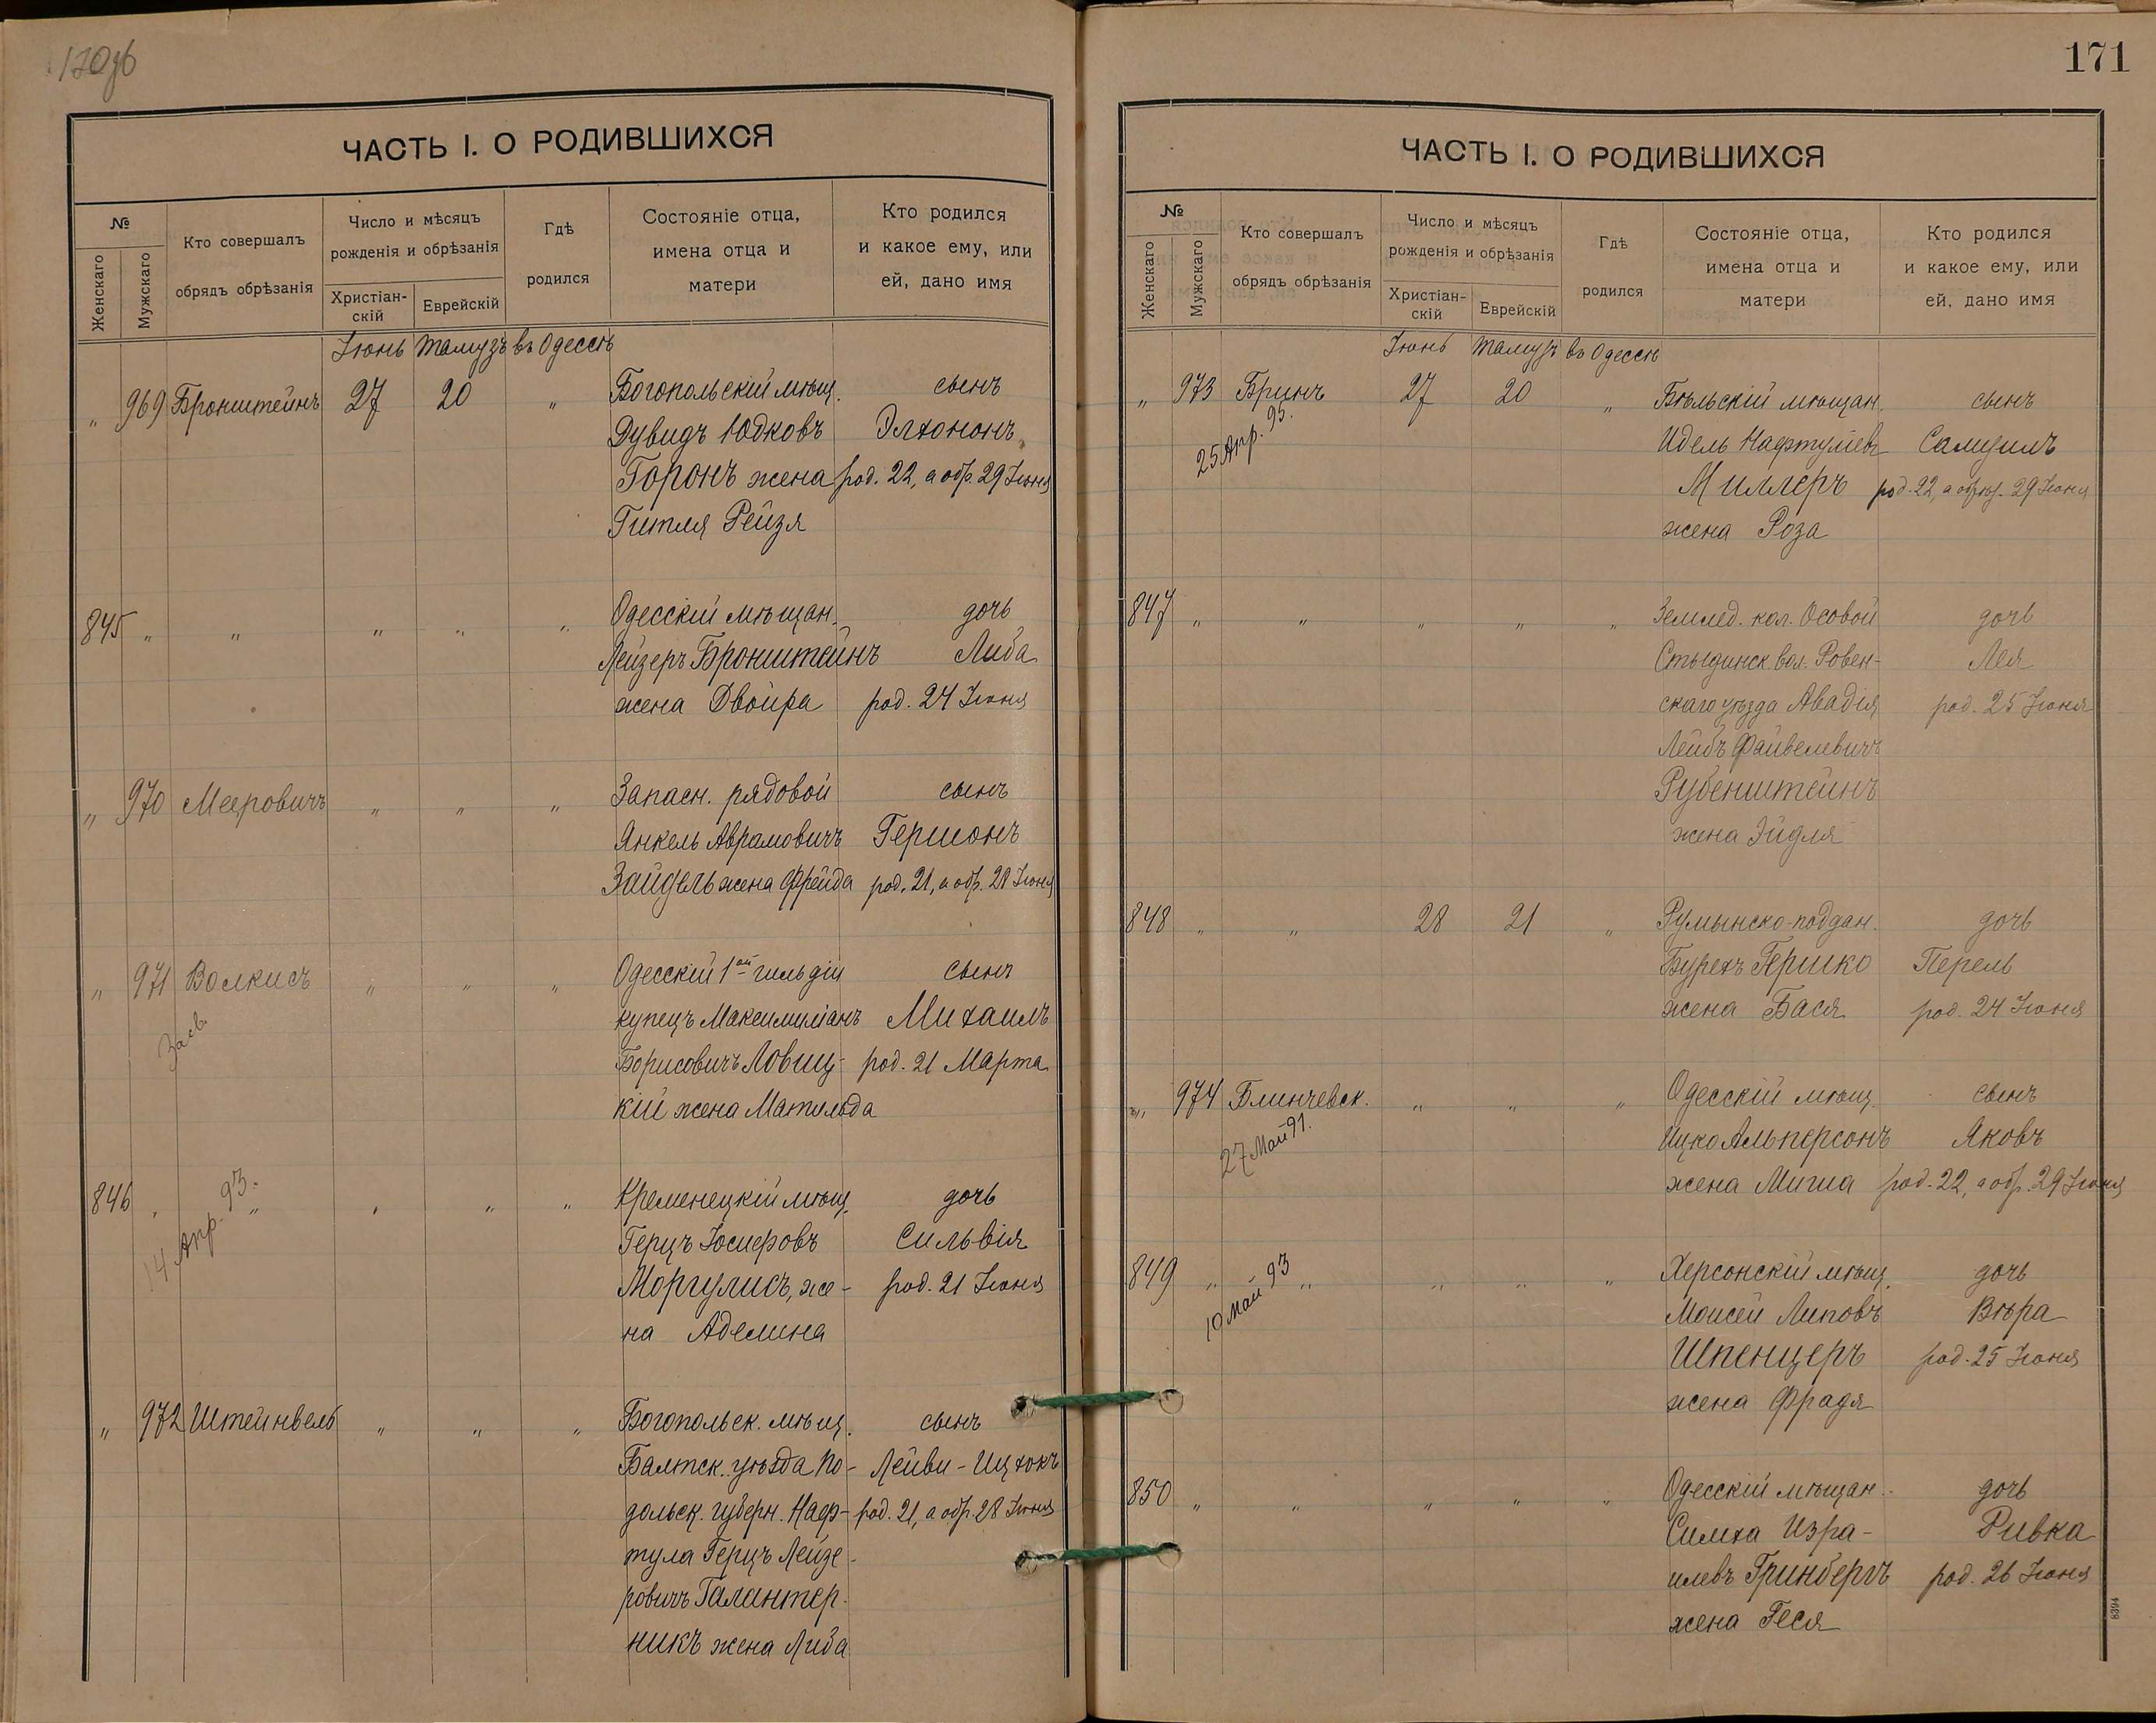 170об
ЧАСТЬ I. О РОДИВШИХСЯ
№
Женскаго
Мужскаго
Кто совершалъ
обрядъ обрѣзанія
Число и мѣсяцъ
рожденія и обрѣзанія
Христіан-
скій
Еврейскій
Гдѣ
родился
Состояніе отца,
имена отца и
матери
Кто родился
и какое ему, или
ей, дано имя
Іюнь Тамузъ въ Одессѣ
„ 969 Бронштейнъ 27 20 „ Богопольскій мѣщ. сынъ
Дувидъ Юдковъ Элхононъ
Горонъ жена род. 22, а обр. 29 Іюня
Гитля Рейзя
845 „ „ „ „ „ Одесскій мѣщан. дочь
Лейзеръ Бронштейнъ Либа
жена Двойра род. 24 Іюня
„ 970 Мееровичъ „ „ „ Запасн. рядовой сынъ
Янкель Аврамовичъ Гершонъ
Зайдель жена Фрейда род. 21, а обр. 28 Іюня
„ 971 Волкисъ „ „ „ Одесскій 1ой гильдіи сынъ
купецъ Максимиліанъ Михаилъ
Борисовичъ Ловиц- род. 21 Марта
кій жена Матильда
846 „ „ „ „ „ Кременецкій мѣщ. дочь
14 Апр. 93.
Герцъ Іосифовъ Сильвія
Моргулисъ, же- род. 21 Іюня
на Аделина
„ 972 Штейнвель „ „ „ Богопольск. мѣщ. сынъ
Балтск. уѣзда По- Лейви-Ицхокъ
дольск. губерн. Наф- род. 21, а обр. 28 Іюня
тула Герцъ Лейзе-
ровичъ Галантер-
никъ жена Либа
171
ЧАСТЬ I. О РОДИВШИХСЯ
№
Женскаго
Мужскаго
Кто совершалъ
обрядъ обрѣзанія
Число и мѣсяцъ
рожденія и обрѣзанія
Христіан-
скій
Еврейскій
Гдѣ
родился
Состояніе отца,
имена отца и
матери
Кто родился
и какое ему, или
ей, дано имя
Іюнь Тамузъ въ Одессѣ
„ 973 Бринъ 27 20 „ Бѣльскій мѣщан. сынъ
25 Апр. 95.
Идель Нафтулевъ Самуилъ
Миллеръ род. 22, а обрѣз. 29 Іюня
жена Роза
847 „ „ „ „ „ Землед. кол. Осовой дочь
Стыдинск. вол. Ровен- Лея
скаго уѣзда Авадія род. 25 Іюня
Лейбъ Файвелевичъ
Рубенштейнъ
жена Эйдля
848 „ „ 28 21 „ Румынско-поддан. дочь
Бурехъ Гершко Перель
жена Бася род. 24 Іюня
„ 974 Блинчевск. „ „ „ Одесскій мѣщ. сынъ
27 Май 91.
Ицко Альперсонъ Яковъ
жена род. 22, а обр. 29 Іюня
849 „ „ „ „ „ Херсонскій мѣщ. дочь
10 Май 93
Моисей Липовъ Вѣра
Шпенцеръ род. 25 Іюня
жена Фрадя
850 „ „ „ „ „ Одесскій мѣщан. дочь
Симха Изра- Ривка
илевъ Гринбергъ род. 26 Іюня
жена Геся
8394